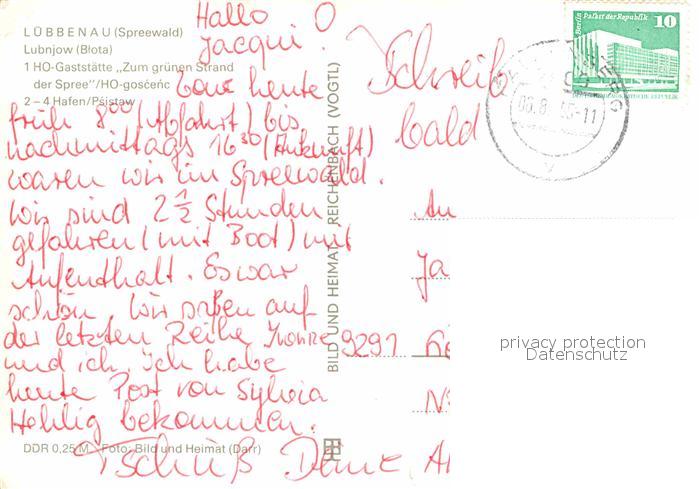 Hallo
Jacqui!
LÜBBENAU (Spreewald)
Lubnjow (Błota)
1 HO-Gaststätte „Zum grünen Strand
der Spree"/HO-gosćeńc
2–4 Hafen/Pśistaw
heute
früh 8 00 (Abfahrt) bis
nachmittags 16 30 (Ankunft)
waren wir im Spreewald.
Wir sind 2 1/2 Stunden
gefahren (mit Boot) mit
Aufenthalt. Es war
schön. Wir saßen auf
der letzten Reihe Ivonne
und ich. Ich habe
heute Post von Sylvia
Hehlig bekommen.
Tschüß Deine
DDR 0,25 M Foto: Bild und Heimat (Darr)
BILD UND HEIMAT REICHENBACH (VOGTL)
Schreib
bald
An
Ja
9291
Berlin Palast der Republik 10
DEUTSCHE DEMOKRATISCHE REPUBLIK
privacy protection
Datenschutz